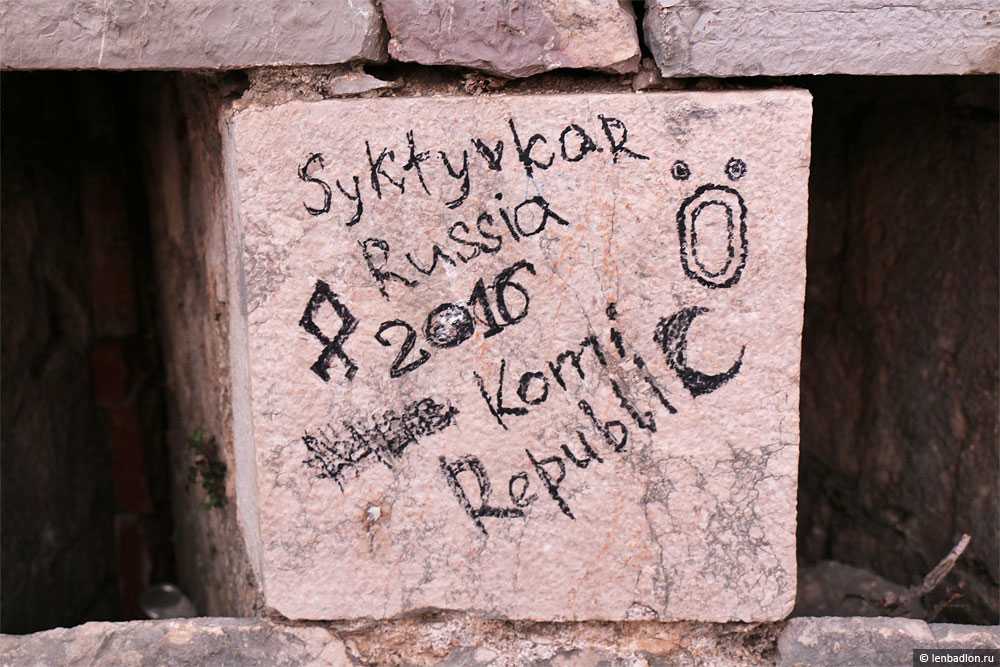 Syktyvkar
Ö
Russia
2016
Komi
Republic
© lenbadlon.ru